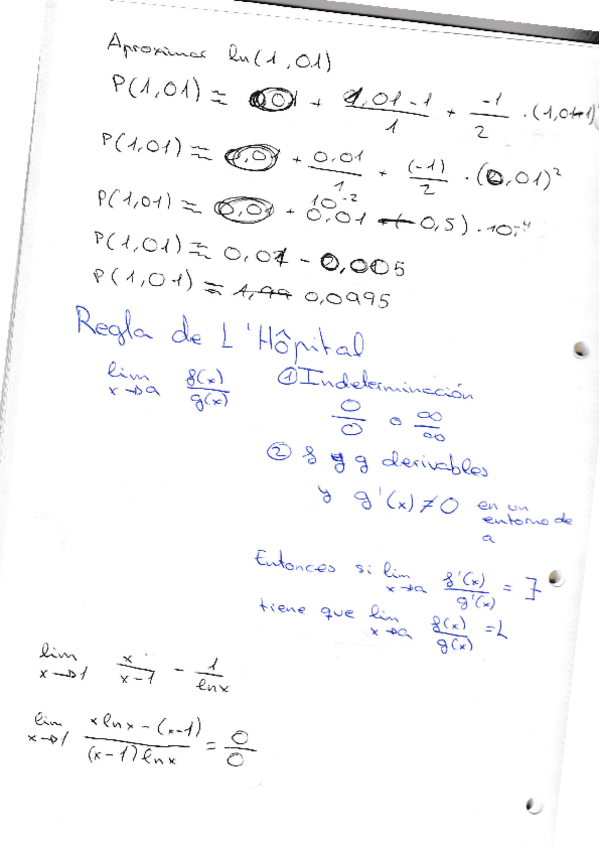 Aproximar ln(1,01)
P(1,01) ≈ 0,01 + (1,01-1)/1 + (-1)/2 · (1,01-1)
P(1,01) ≈ 0,01 + 0,01/1 + (-1)/2 · (0,01)²
P(1,01) ≈ 0,01 + 0,01 (-0,5) · 10⁻⁴
10⁻²
P(1,01) ≈ 0,01 - 0,005
P(1,01) ≈ 1,99 0,0995
Regla de L'Hôpital
lim x→a f(x)/g(x)
① Indeterminación
0/0 o ∞/∞
② f y g derivables
y g'(x) ≠ 0 en un
entorno de
a
Entonces si lim x→a f'(x)/g'(x) = L
tiene que lim x→a f(x)/g(x) = L
lim x→1 x/(x-1) - 1/lnx
lim x→1 (x lnx - (x-1))/((x-1) lnx) = 0/0